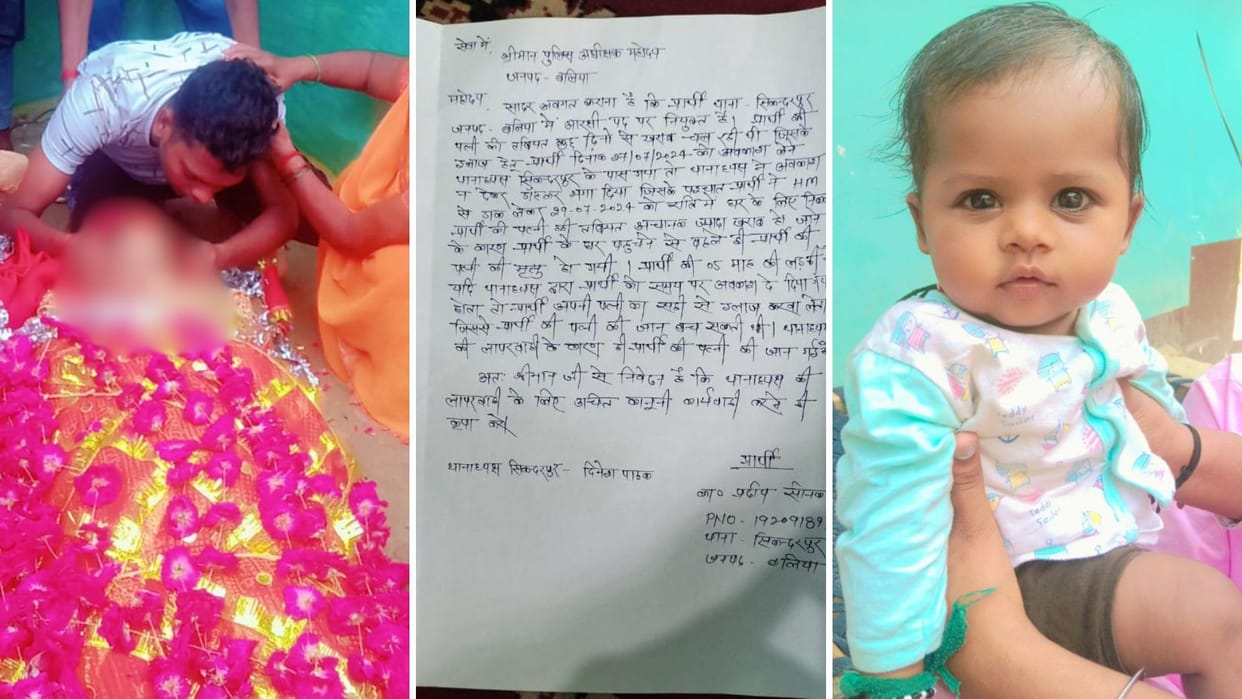 सेवा में,
श्रीमान पुलिस अधीक्षक महोदय
जनपद - बलिया
महोदय,
सादर अवगत कराना है कि प्रार्थी थाना - सिकन्दरपुर
जनपद - बलिया में आरक्षी पद पर नियुक्त है। प्रार्थी की
पत्नी की तबियत कुछ दिनो से खराब चल रही थी जिसके
इलाज हेतु प्रार्थी दिनांक 27/07/2024 को अवकाश लेने
थानाध्यक्ष सिकन्दरपुर के पास गया तो थानाध्यक्ष ने अवकाश
न देकर डांटकर भगा दिया जिसके पश्चात प्रार्थी ने HM
से डाक लेकर 29-07-2024 को रात्रि में घर के लिए
प्रार्थी की पत्नी की तबियत अचानक ज्यादा खराब हो जाने
के कारण प्रार्थी के घर पहुचने से पहले ही प्रार्थी की
पत्नी की मृत्यु हो गयी। प्रार्थी की 05 माह की लड़की
यदि थानाध्यक्ष द्वारा प्रार्थी को समय पर अवकाश दे दिया
होता तो प्रार्थी अपनी पत्नी का सही से इलाज करवा लेता
जिससे प्रार्थी की पत्नी की जान बच सकती थी। थानाध्यक्ष
की लापरवाही के कारण ही प्रार्थी की पत्नी की जान गई
अतः श्रीमान जी से निवेदन है कि थानाध्यक्ष की
लापरवाही के लिए उचित कानूनी कार्यवाही करने की
कृपा करें
थानाध्यक्ष सिकन्दरपुर - दिनेश पाठक
प्रार्थी
का० प्रदीप सोनक
PNO - 19209189
थाना - सिकन्दरपुर
जनपद - बलिया
Teddy
Sailor
Teddy
Sailor